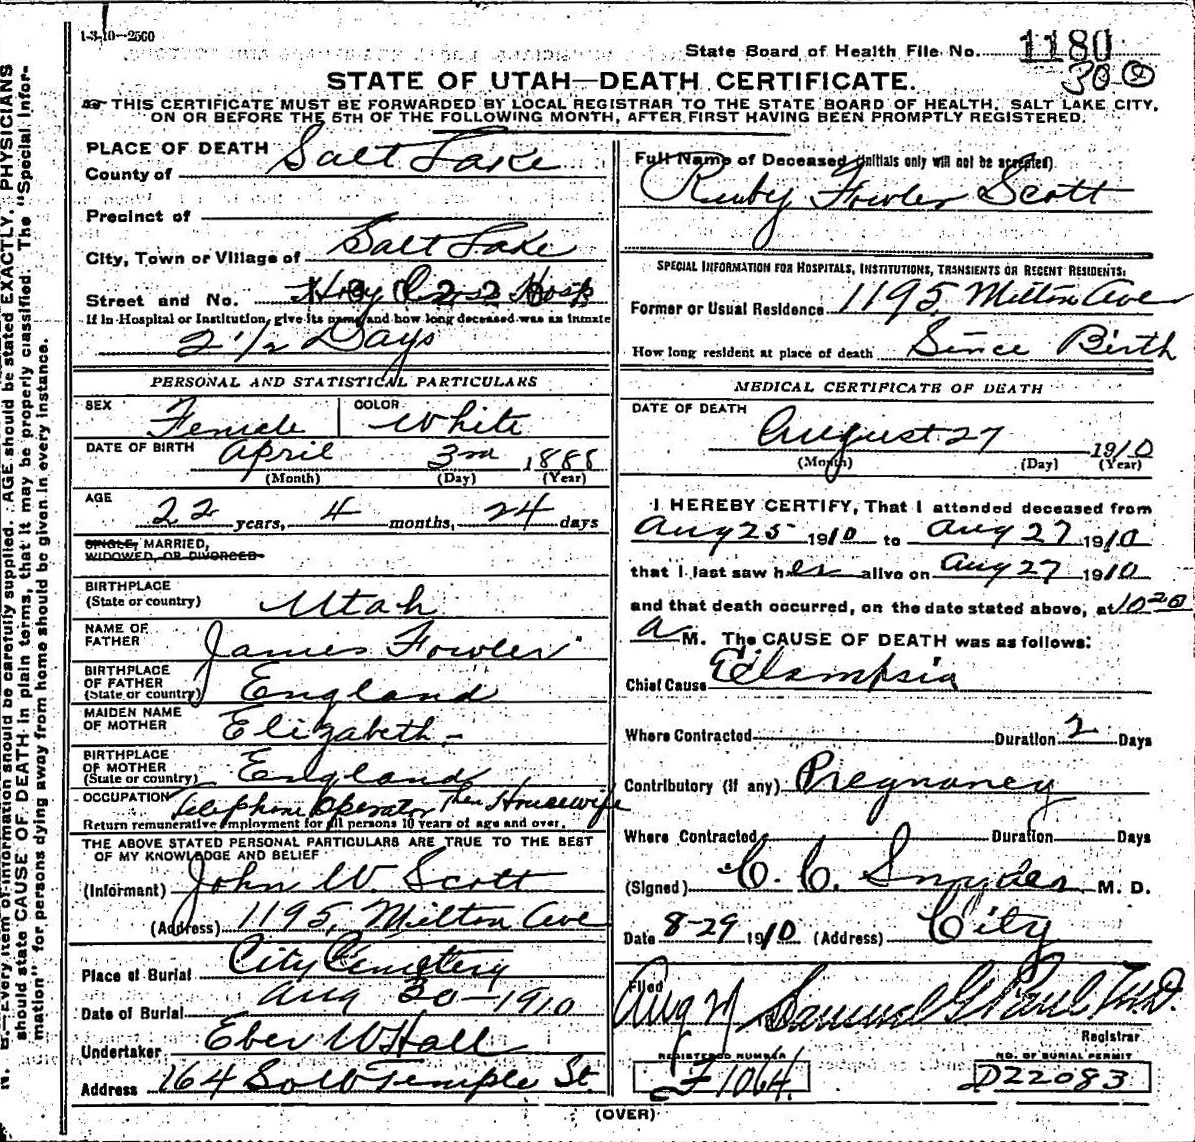 1-3-10-2500
State Board of Health File No. 1180
30
STATE OF UTAH—DEATH CERTIFICATE.
THIS CERTIFICATE MUST BE FORWARDED BY LOCAL REGISTRAR TO THE STATE BOARD OF HEALTH, SALT LAKE CITY,
ON OR BEFORE THE 5TH OF THE FOLLOWING MONTH, AFTER FIRST HAVING BEEN PROMPTLY REGISTERED.
PLACE OF DEATH
County of Salt Lake
Precinct of
City, Town or Village of Salt Lake
Street and No. Holy Cross Hosp
If in Hospital or Institution, give its name and how long deceased was an inmate
2 1/2 Days
PERSONAL AND STATISTICAL PARTICULARS
SEX Female COLOR White
DATE OF BIRTH April 3rd 1888
(Month) (Day) (Year)
AGE 22 years, 4 months, 24 days
SINGLE, MARRIED,
WIDOWED, OR DIVORCED
BIRTHPLACE
(State or country) Utah
NAME OF
FATHER James Fowler
BIRTHPLACE
OF FATHER
(State or country) England
MAIDEN NAME
OF MOTHER Elizabeth -
BIRTHPLACE
OF MOTHER
(State or country) England
OCCUPATION Telephone Operator Then Housewife
Return remunerative employment for all persons 10 years of age and over.
THE ABOVE STATED PERSONAL PARTICULARS ARE TRUE TO THE BEST
OF MY KNOWLEDGE AND BELIEF
(Informant) John W. Scott
(Address) 1195, Milton Ave
Place of Burial City Cemetery
Date of Burial Aug 30-1910
Undertaker Eber W Hall
Address 164 So W Temple St.
Full Name of Deceased (Initials only will not be accepted)
Ruby Fowler Scott
SPECIAL INFORMATION FOR HOSPITALS, INSTITUTIONS, TRANSIENTS OR RECENT RESIDENTS:
Former or Usual Residence 1195, Milton Ave
How long resident at place of death Since Birth
MEDICAL CERTIFICATE OF DEATH
DATE OF DEATH
August 27 1910
(Month) (Day) (Year)
I HEREBY CERTIFY, That I attended deceased from
Aug 25 1910 to Aug 27 1910
that I last saw her alive on Aug 27 1910
and that death occurred, on the date stated above, at 10 20
A M. The CAUSE OF DEATH was as follows:
Chief Cause Eclampsia
Where Contracted Duration 2 Days
Contributory (if any) Pregnancy
Where Contracted Duration Days
(Signed) C. C. Snyder M. D.
Date 8-29 1910 (Address) City
Filed
Aug 29 Samuel G Paul, M.D.
Registrar
REGISTERED NUMBER
F1064.
NO. OF BURIAL PERMIT
D22083
(OVER)
N. B.—Every item of information should be carefully supplied. AGE should be stated EXACTLY. PHYSICIANS
should state CAUSE OF DEATH in plain terms, that it may be properly classified. The "Special Infor-
mation" for persons dying away from home should be given in every instance.